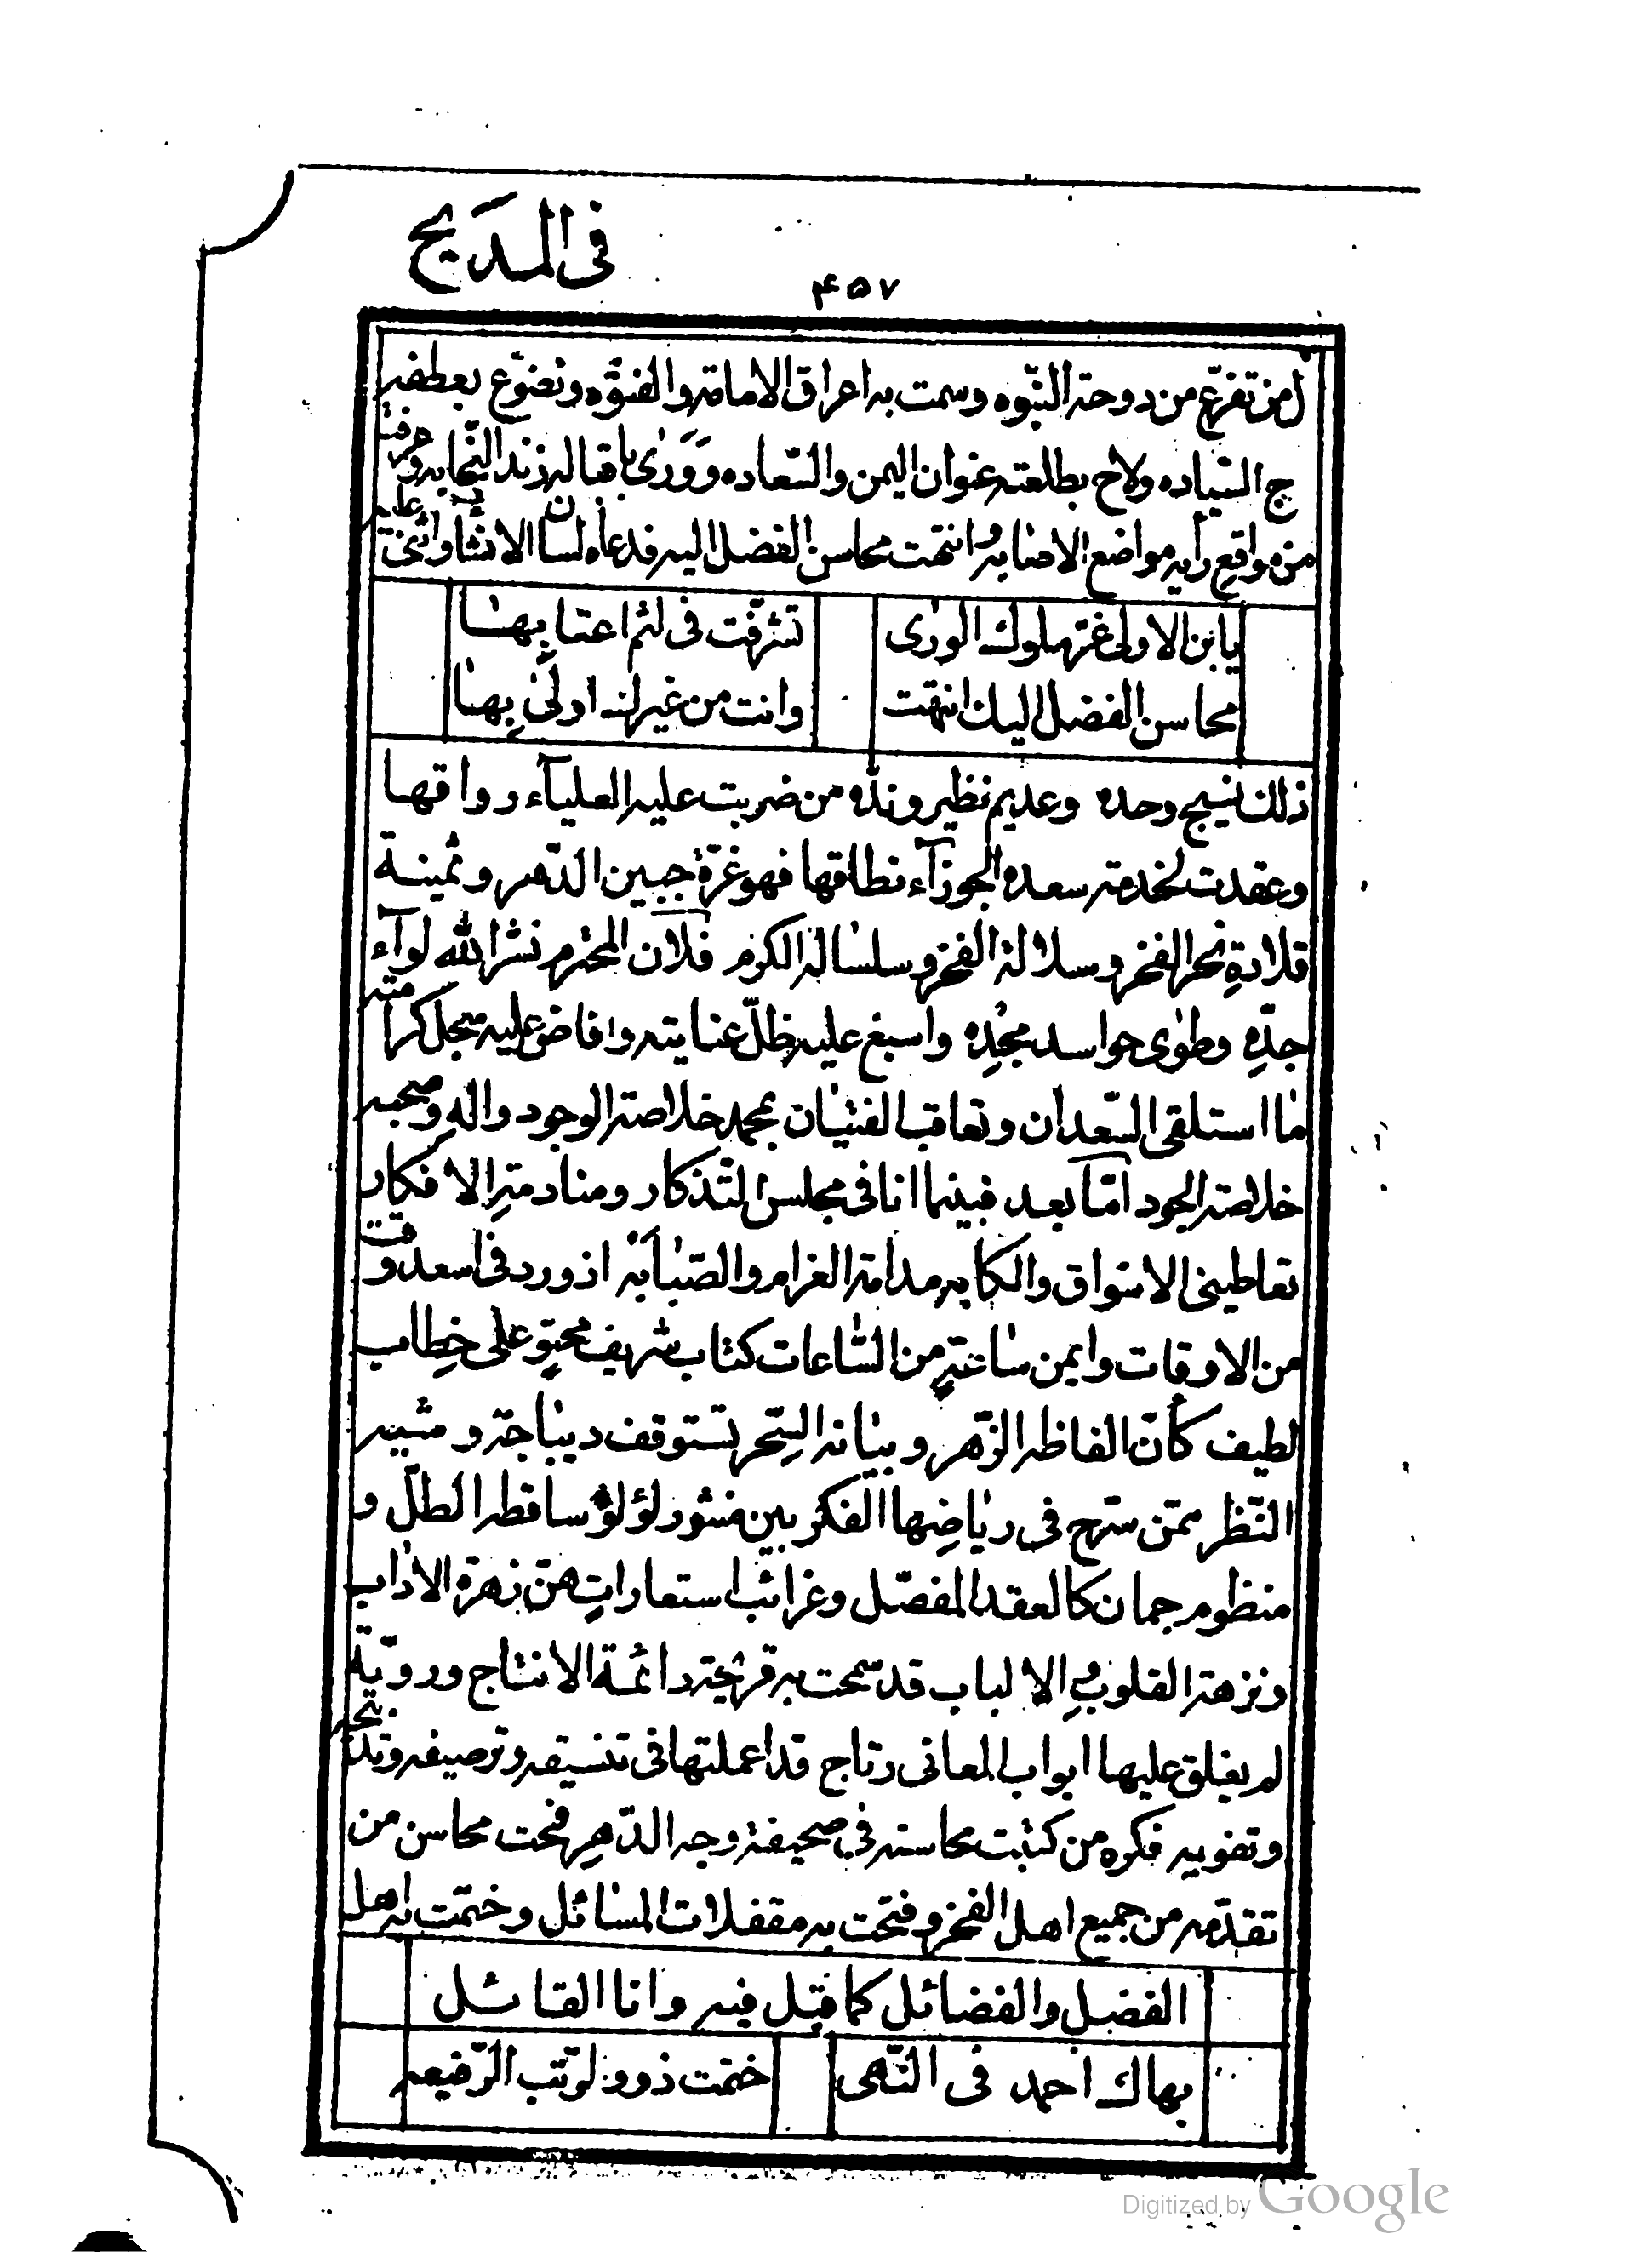 فى المديح
۴۵۷
ل من تفرّع من دوحة النّبوه وسمت به اعراق الامامة والفتوّه وتضوّع بعطفه
ج السّياده ولاح بطلعته عنوان اليمن والسّعاده ووَرىٰ باقباله زند النّجابه وعرفت
من مواقع رأيه مواضع الاصابه وانتهت محاسن الفضل اليه فدعاه لسان الانشاء واثنى عليه
يا بن الاولى غرّ ملوك الورى تشرّفت فى لثم اعتابها
محاسن الفضل اليك انتهت وانت من غيرك اولىٰ بها
ذلك نسيج وحده وعديم نظيره ونده من ضربت عليه العلياء رواقها
وعقدت لخدمة سعده الجوزآء نطاقها فهو غرّة جبين الدّهر وثمينة
قلادةِ نحر الفخر وسلالة الفخر وسلسالة الكرم فلان المحترم نشر الله لوآء
جدّهِ وطوى حواسد مجدِه واسبغ عليه ظلّ عنايته وافاض عليه سجل كرامته
ما استلقى السّعدان وتعاقب الفتيان بمحمد خلاصة الوجود واله وصحبه
خلاصة الجود امّا بعد فبينما انا فى مجلس التّذكار ومنادمة الافكار
تعاطينى الاشواق والكابه مدامة الغرام والصّبابه اذ ورد فى اسعد وقت
من الاوقات وايمن ساعةٍ من السّاعات كتاب شريف محتوٍ على خِطاب
لطيف كأنّ الفاظه الزّهر وبيانه السِّحر تستوقف ديباجة وشيه
النّظر ممّن سرّح فى رياضِها الفكر بين منثور لؤلؤ ساقطه الطلّ و
منظوم جمان كالعقد المفصّل وغرائب استعاراتٍ هنّ زهرة الاداب
ونزهة القلوب والالباب قد سمحت به قريحة دائمة الانتاج وروّية
لم يغلق عليها ابواب المعانى رتاج قد اعملتها فى تنسيقه وترصيفه وتحبيره
وتفويه فكره من كتبت محاسنه فى صحيفة وجه الدّهر فمحت محاسن من
تقدّمه من جميع اهل الفخر وفتحت به مقفلات المسائل وختمت به اهل
الفضل والفضائل كما قيل فيه وانا القائل
بهاك احمد فى النّهى ختمت ذوو الرّتب الرّفيعه
Digitized by Google